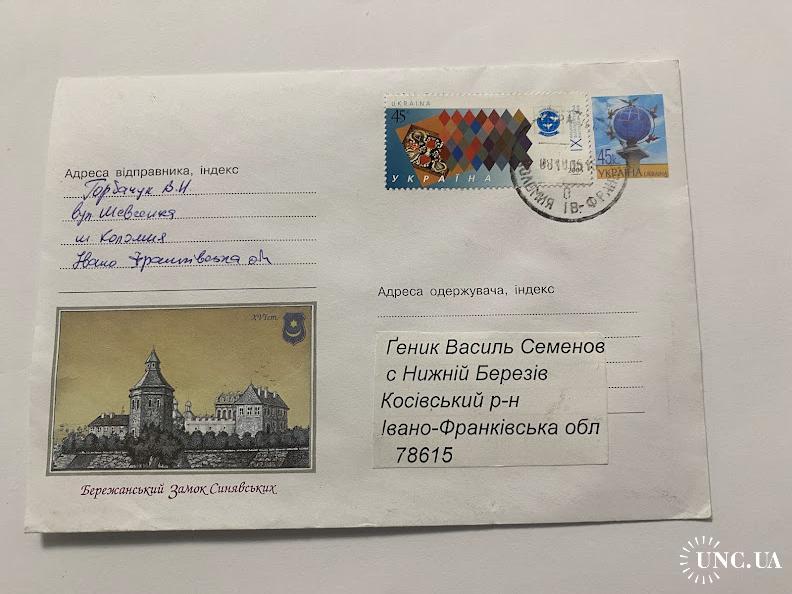 UKRAINA
45
УКРАЇНА
2005
45к
УКРАЇНА UKRAINE
КОЛОМИЯ ІВ-ФРАН
Адреса відправника, індекс
Горбачук В.И
вул Шевченка
м Коломия
Івано Франківська обл
Адреса одержувача, індекс
Ґеник Василь Семенов
с Нижній Березів
Косівський р-н
Івано-Франківська обл
78615
XVI ст.
Бережанський Замок Синявських
UNC.UA